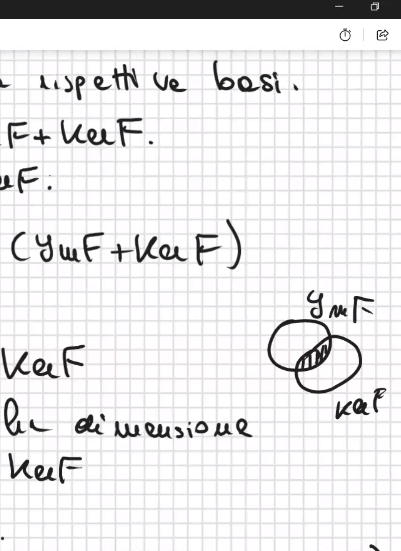 rispettive basi.
F + KerF.
F:
(ImF + KerF)
ImF
KerF
KerF
ha dimensione
KerF